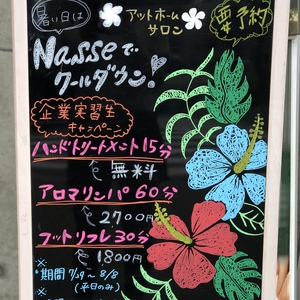 暑い日は
アットホーム
サロン
要予約
Nasseで
クールダウン!
企業実習生
キャンペーン
ハンドトリートメント15分
無料
アロマリンパ60分
2700円
フットリフレ30分
1800円
※
*期間 7/29〜8/8
(平日のみ)
※